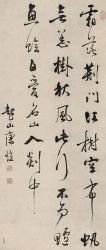 霜落荊門江樹空布帆
無恙掛秋風此行不為鱸
魚鱠自愛名山入剡中